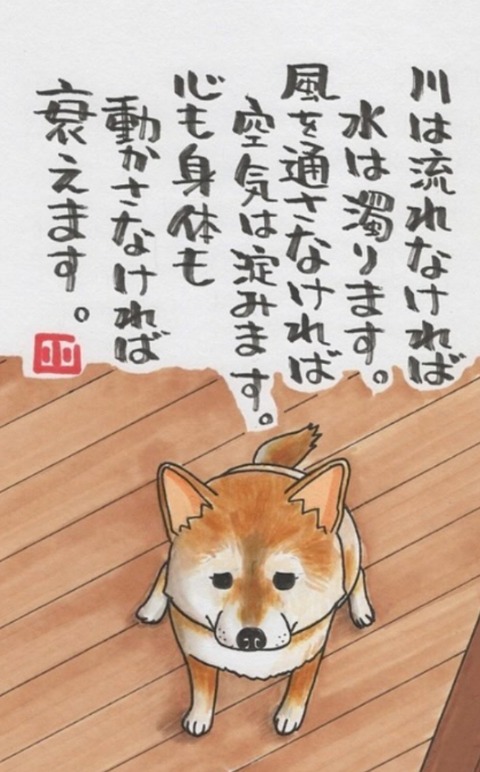 川は流れなければ
水は濁ります。
風を通さなければ
空気は淀みます。
心も身体も
動かさなければ
衰えます。